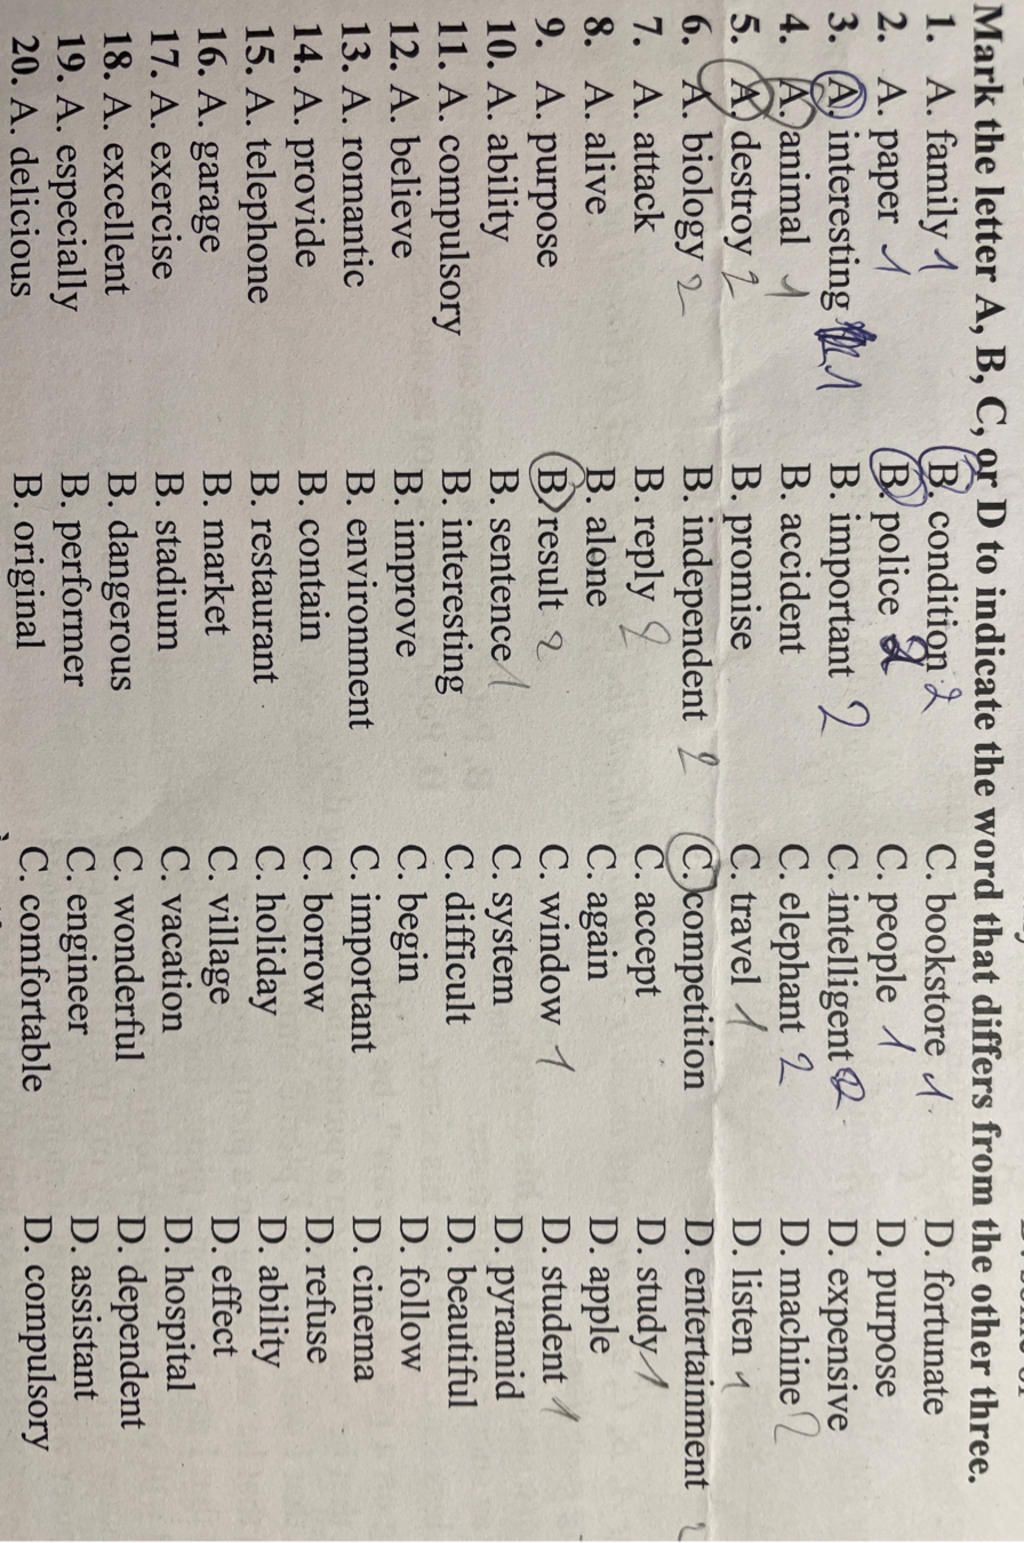 Mark the letter A, B, C, or D to indicate the word that differs from the other three.
1. A. family 1 B. condition 2 C. bookstore 1 D. fortunate
2. A. paper 1 B. police 2 C. people 1 D. purpose
3. A. interesting 1 B. important 2 C. intelligent 2 D. expensive
4. A. animal 1 B. accident C. elephant 2 D. machine 2
5. A. destroy 2 B. promise C. travel 1 D. listen 1
6. A. biology 2 B. independent 2 C. competition D. entertainment 2
7. A. attack B. reply 2 C. accept D. study 1
8. A. alive B. alone C. again D. apple
9. A. purpose B. result 2 C. window 1 D. student 1
10. A. ability B. sentence 1 C. system D. pyramid
11. A. compulsory B. interesting C. difficult D. beautiful
12. A. believe B. improve C. begin D. follow
13. A. romantic B. environment C. important D. cinema
14. A. provide B. contain C. borrow D. refuse
15. A. telephone B. restaurant C. holiday D. ability
16. A. garage B. market C. village D. effect
17. A. exercise B. stadium C. vacation D. hospital
18. A. excellent B. dangerous C. wonderful D. dependent
19. A. especially B. performer C. engineer D. assistant
20. A. delicious B. original C. comfortable D. compulsory